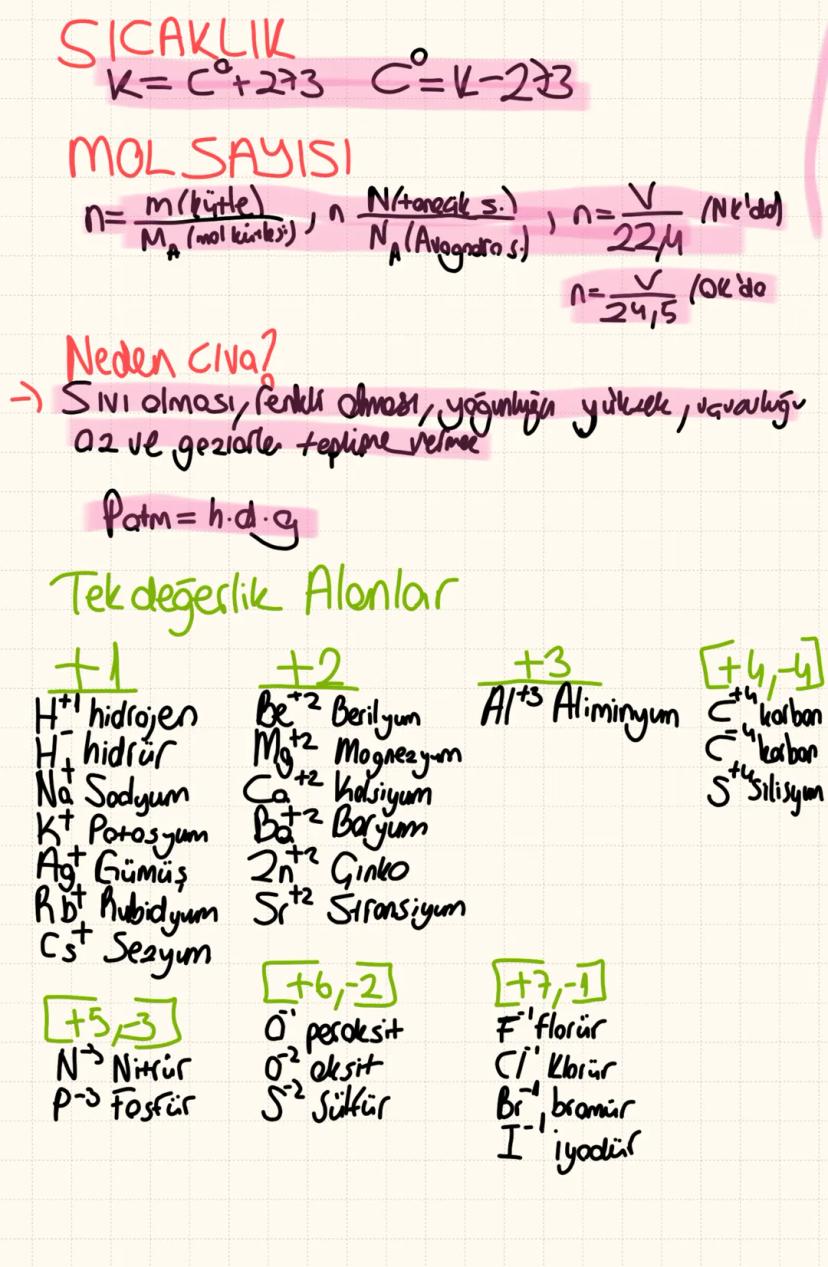 SICAKLIK
K= C°+273 C°=K-273
MOL SAYISI
n= m(kütle) / MA (mol kütlesi), n N(tanecik s.) / NA (Avogadro s.), n= V / 22,4 (NK'da)
n= V / 24,5 (OK'da
Neden CIva?
→ Sıvı olması, renkli olması, yoğunluğu yüksek, uçuculuğu
az ve gazlarla tepkime vermez
Patm = h.d.g
Tek değerlik Alanlar
+1 +2 +3 [+4,-4]
H+1 hidrojen Be+2 Berilyum Al+3 Aliminyum C+4 karbon
H- hidrür Mg+2 Magnezyum C-4 karbon
Na+ Sodyum Ca+2 Kalsiyum S+4 silisyum
K+ Potasyum Ba+2 Baryum
Ag+ Gümüş Zn+2 Çinko
Rb+ Rubidyum Sr+2 Stransiyum
Cs+ Sezyum
[+5,-3] [+6,-2] [+7,-1]
N-3 Nitrür O-1 peroksit F-1 florür
P-3 Fosfür O-2 oksit Cl-1 Klorür
S-2 Sülfür Br-1 bromür
I-1 iyodür